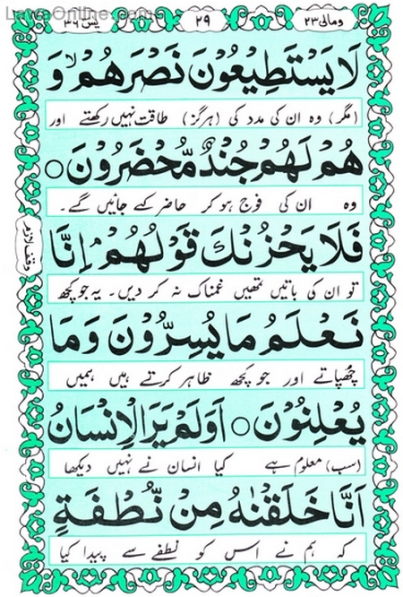 ومالی ۲۳ ۲۹ یٰسٓ ۳۶
لَا يَسْتَطِيْعُوْنَ نَصْرَهُمْ ۙ وَ
(مگر) وہ ان کی مدد کی (ہرگز) طاقت نہیں رکھتے اور
هُمْ لَهُمْ جُنْدٌ مُّحْضَرُوْنَ ○
وہ ان کی فوج ہو کر حاضر کیے جائیں گے۔
فَلَا يَحْزُنْكَ قَوْلُهُمْ ۘ اِنَّا
تو ان کی باتیں تمھیں غمناک نہ کر دیں۔ یہ جو کچھ
نَعْلَمُ مَا يُسِرُّوْنَ وَمَا
چھپاتے اور جو کچھ ظاہر کرتے ہیں ہمیں
يُعْلِنُوْنَ ○ اَوَلَمْ يَرَ الْاِنْسَانُ
(سب) معلوم ہے کیا انسان نے نہیں دیکھا
اَنَّا خَلَقْنٰهُ مِنْ نُّطْفَةٍ
کہ ہم نے اس کو نطفے سے پیدا کیا